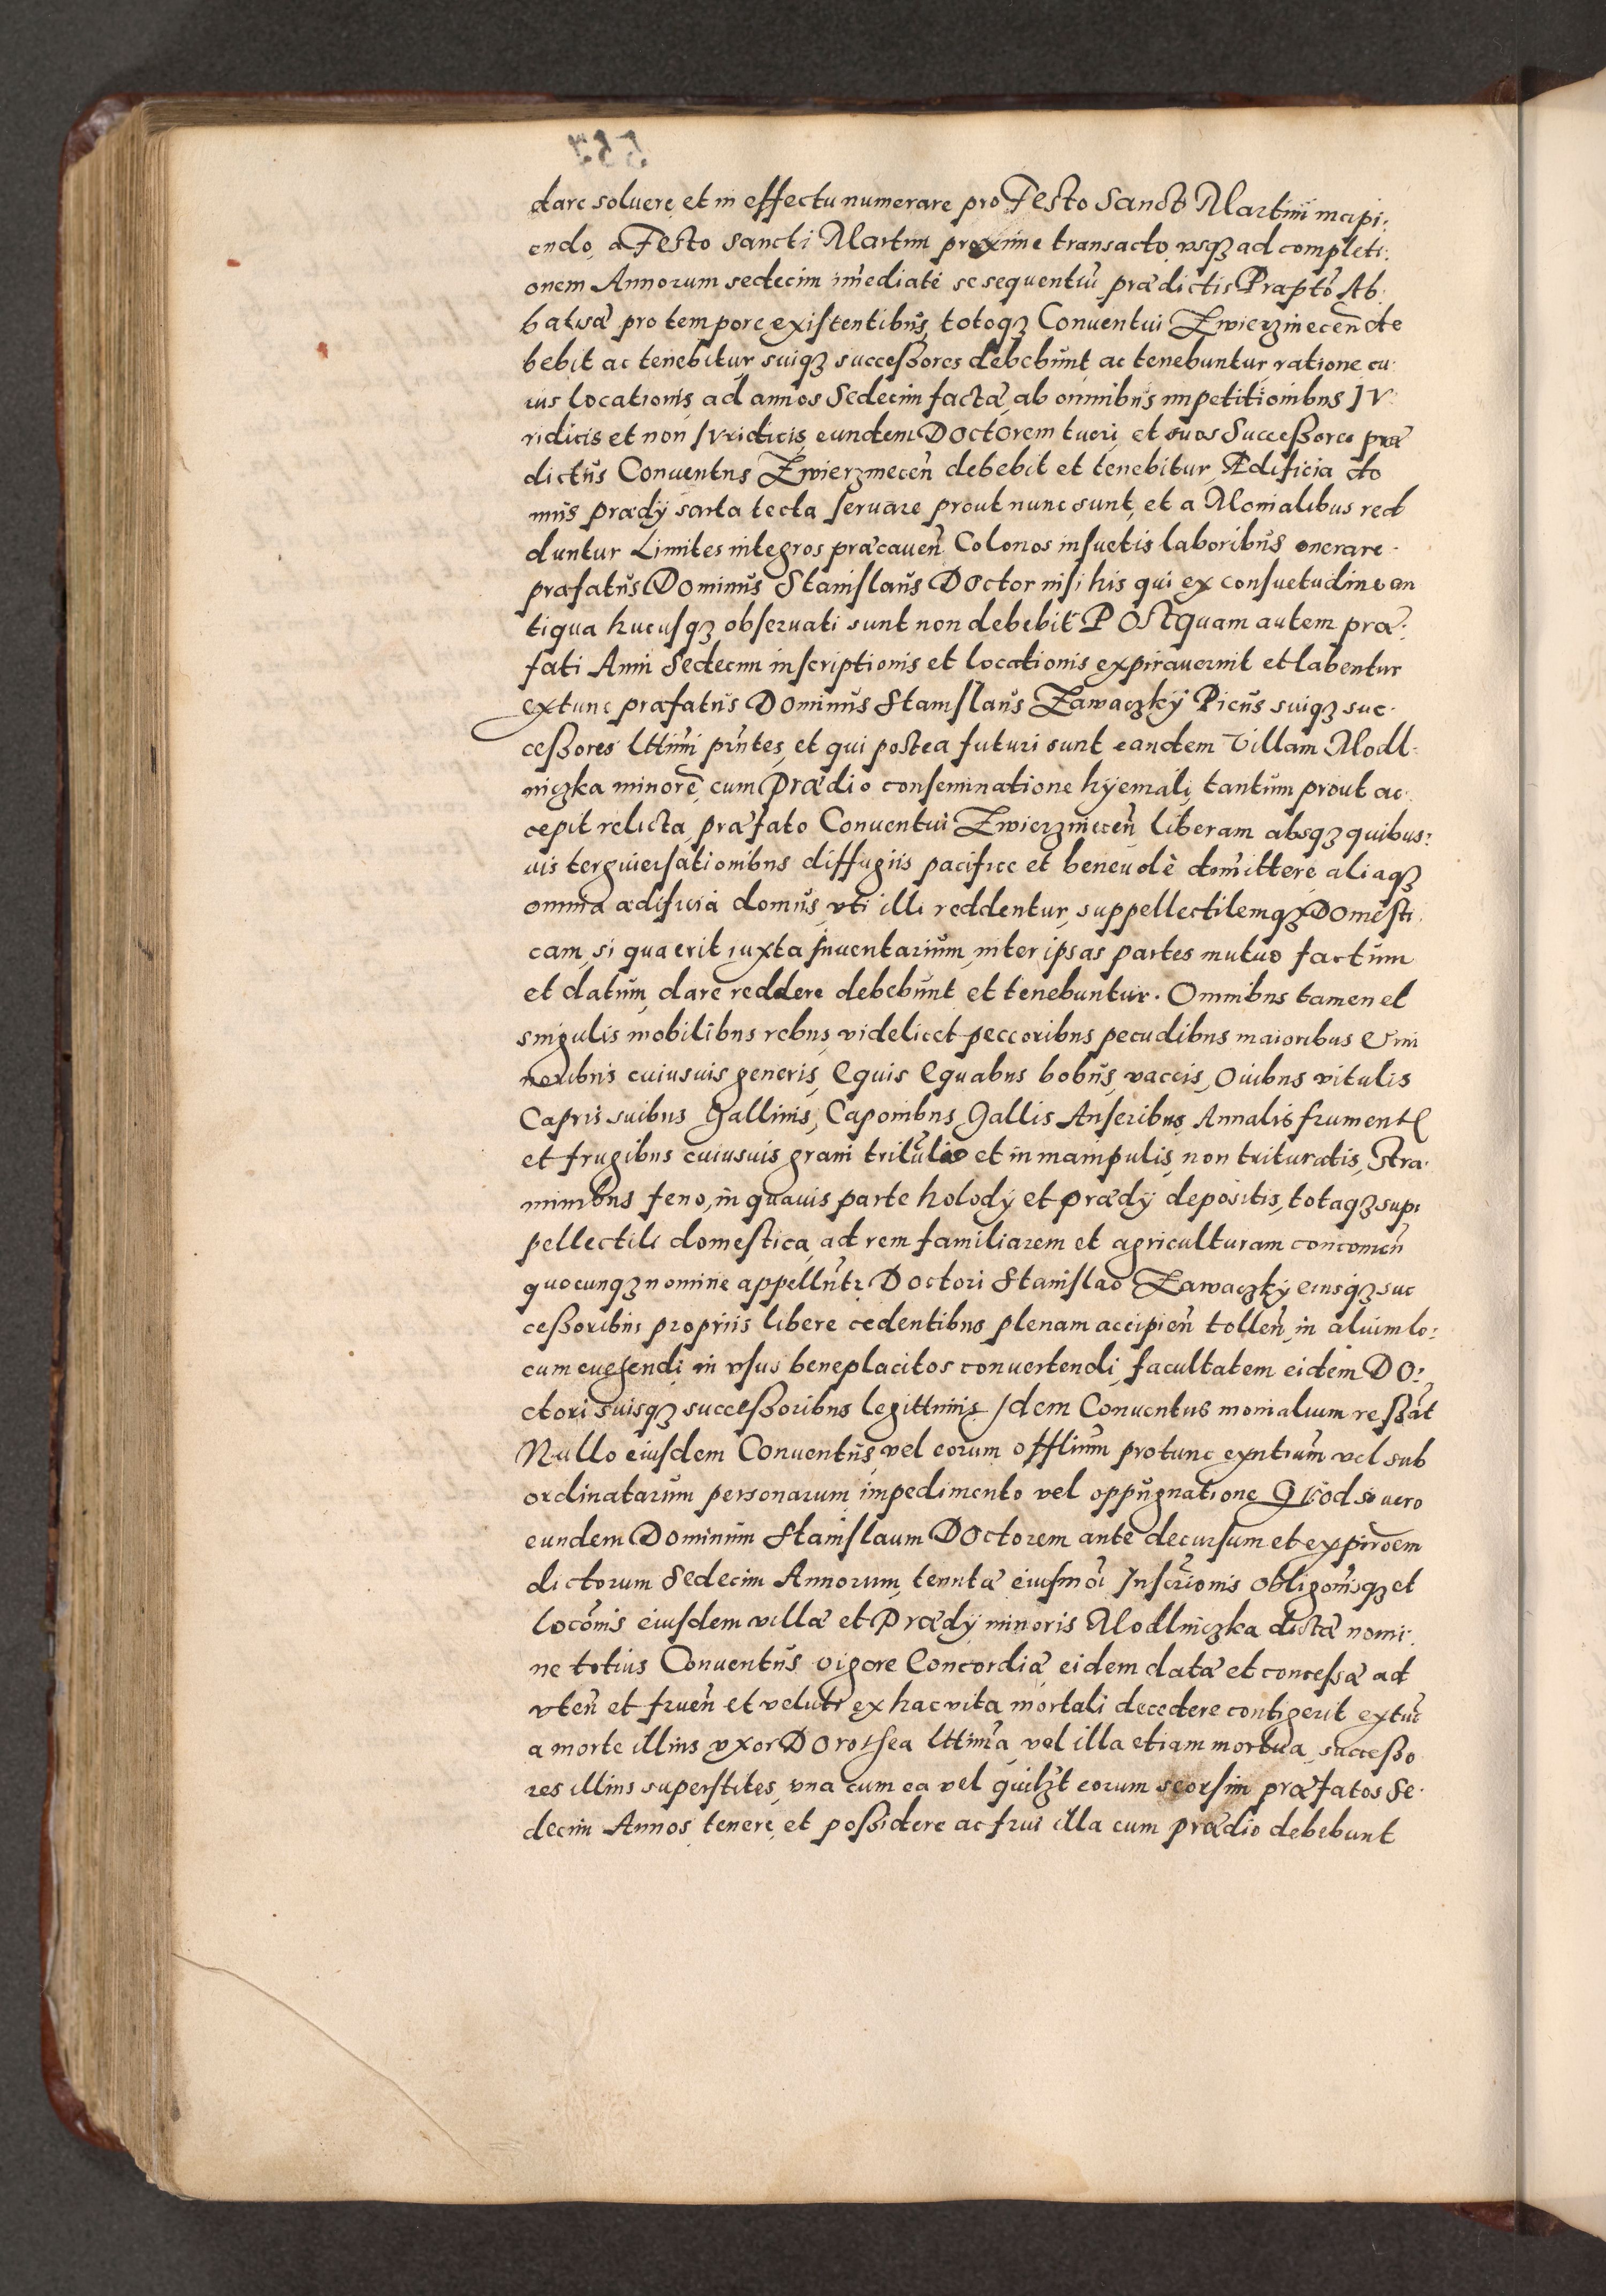 dare soluere, et in effectu numerare pro Festo Sancti Martini incipi:
endo, a Festo Sancti Martini proxime transacto, vsqȝ ad completi:
onem Annorum sedecim im̃ediate se sequentiũ prædictis Præpto Ab:
batissæ pro tempore existentibus totoqȝ Conuentui Zwierzinecen̄ de
bebit ac tenebitur, suiqȝ successores debebunt ac tenebuntur, ratione cu
ius locationis, ad annos Sedecim factæ, ab omnibus impetitionibus IV
ridicis et non Iuridicis, eundem Doctorem tueri, et suos Successores præ
dictus Conuentus Zwierzinecen̄ debebit et tenebitur, Ædificia do
mus prædÿ sarta tecta seruare prout nunc sunt, et a Monialibus red
duntur Limites integros præcauen̄ Colonos insuetis laboribus onerare
præfatus Dominus Stanislaus Doctor nisi his qui ex consuetudine an
tiqua hucusqȝ obseruati sunt non debebit POStquam autem præ:
fati Anni Sedecim inscriptionis et locationis expirauerint et labentur
extunc præfatus Dominus Stanislaus Zawaczkÿ Picus suiqȝ suc
cessores lttimi pñtes, et qui postea futuri sunt eandem Villam Modl:
niczka minorẽ, cum Prædio conseminatione hÿemali, tantum prout ac
cepit relicta, præfato Conuentui Zwierzinecen̄ liberam absqȝ quibus:
uis terguiersationibus diffugiis pacifice et beneuolè dim̃ittere aliaqȝ
omnia ædificia domus, vti illi reddentur, suppellectilemqȝ Domesti
cam, si qua erit iuxta Inuentarium, inter ipsas partes mutuo factum
et datum, dare reddere debebunt et tenebuntur. Omnibus tamen et
singulis mobilibus rebus, videlicet peccoribus pecudibus maioribus & mi
noribus cuiusuis generis, Equis Equabus bobus, vaccis, Ouibus vitulis
Capris suibus Gallinis, Caponibus, Gallis Anseribus, Annalis frument
et frugibus cuiusuis grani tritulis et in manipulis, non trituratis, Stra
minibus feno, in quauis parte holodÿ et prædÿ depositis, totaqȝ sup:
pellectili domestica, ad rem familiarem et agriculturam concomen̄
quocunqȝ nomine appellñtr Doctori Stanislao Zawaczkÿ eiusqȝ suc
cessoribus propriis libere cedentibus plenam accipien̄ tollen̄, in alium lo:
cum euehendi in vsus beneplacitos conuertendi, facultatem eidem DO:
ctori suisqȝ successoribus legittimis, Idem Conuentus monialium reßat
Nullo eiusdem Conuentus, vel eorum offlium protunc exntium vel sub
ordinatarum personarum, impedimento vel oppugnatione QVod si uero
eundem Dominum Stanislaum Doctorem ante decursum et expiroem
dictorum Sedecim Annorum, tenutæ eiusmoi Inscrionis obligonisqȝ et
loconis eiusdem villæ et Prædÿ minoris Modlniczka dictæ nomi:
ne totius Conuentus vigore Concordiæ eidem datæ et concessæ ad
vten̄ et fruen̄ et veluti ex hac vita mortali decedere contigerit extuc
a morte illius vxor DOrothea lttima, vel illa etiam mortua, successo
res illius superstites, vna cum ea vel quilȝt eorum seorsim præfatos Se
decim Annos tenere, et possidere ac frui illa cum prædio debebunt